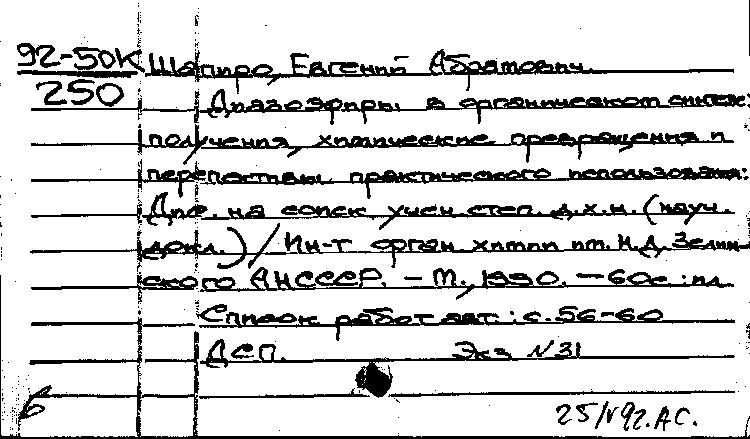 92-50К Шапиро, Евгений Абрамович.
250 Диазоэфиры в органическом синтезе:
получения, химические превращения и
перспективы практического использования:
Дис. на соиск. учен. степ. д.х.н. (науч.
докл.) / Ин-т орган. химии им. Н.Д. Зелин-
ского АН СССР. - М., 1990. - 60с.: ил.
Список работ авт.: с. 56-60
ДСП. Экз N31
6
25/V 92. А.С.